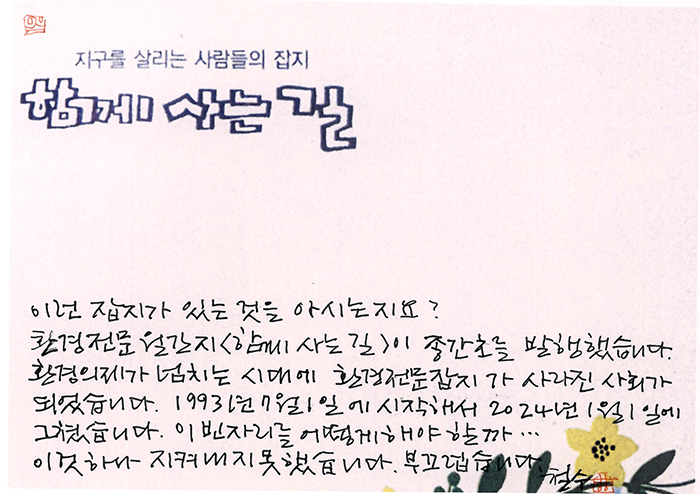 지구를 살리는 사람들의 잡지
함께 사는 길
이런 잡지가 있는 것을 아시는지요?
환경전문 월간지<함께 사는 길>이 종간호를 발행했습니다.
환경의제가 넘치는 시대에 환경전문잡지가 사라진 사회가
되었습니다. 1993년 7월 1일에 시작해서 2024년 1월 1일에
그쳤습니다. 이 빈자리를 어떻게 해야 할까…
이것 하나 지켜내지 못했습니다. 부끄럽습니다. 철수